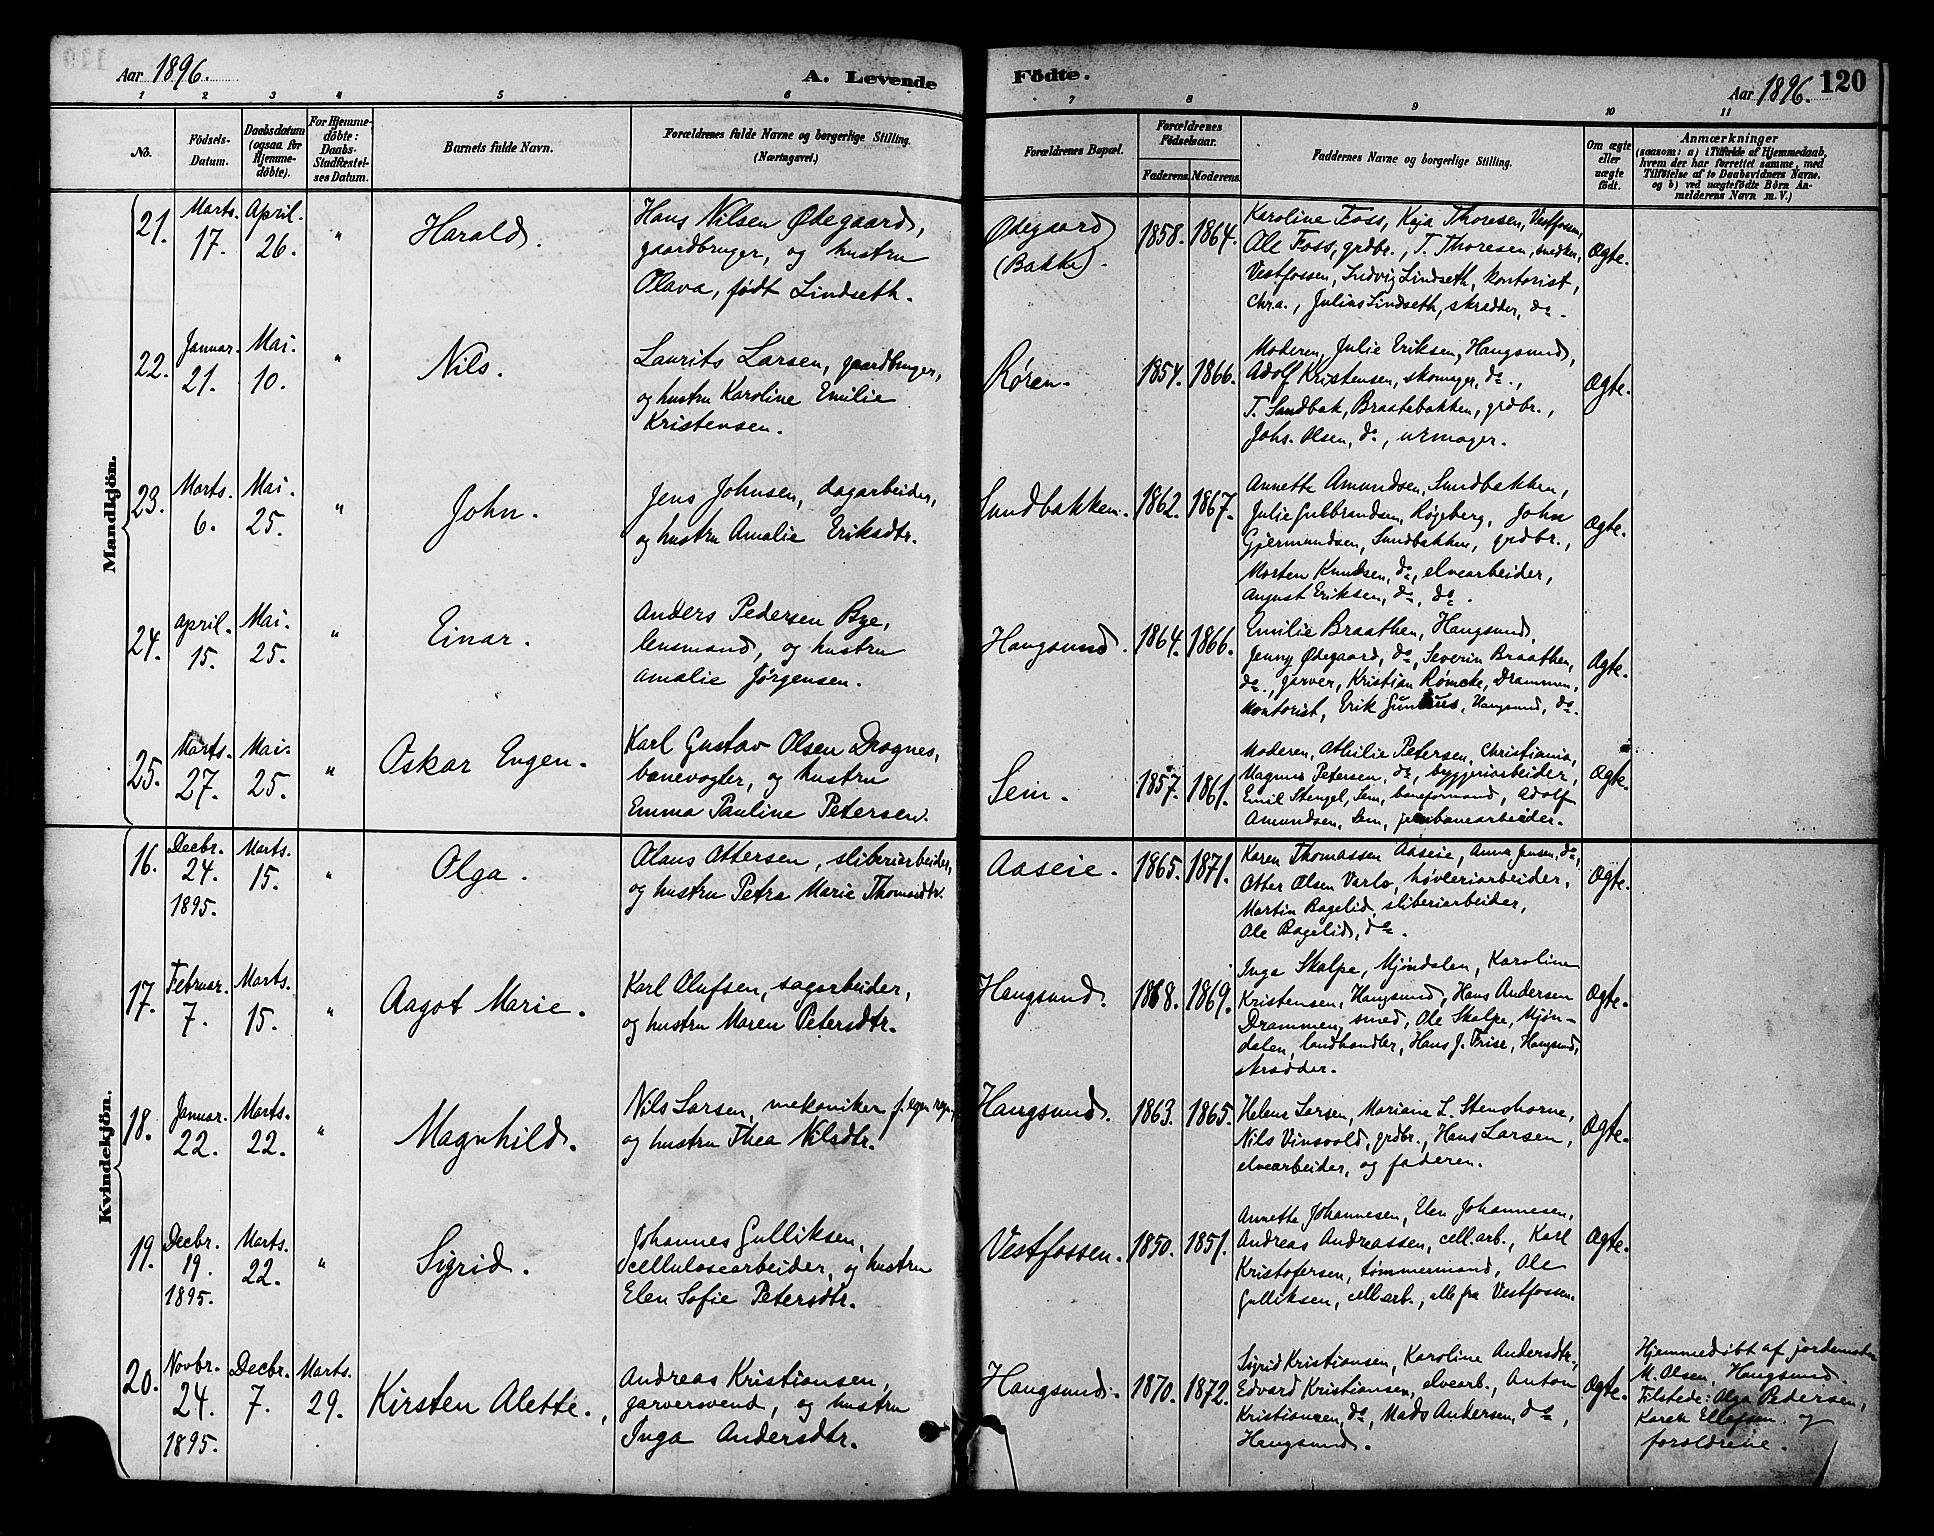 Aar 1896.
A. Levende
Födte.
Aar 1896.
120
1 2 3 4 5 6 7 8 9 10 11
No.
Födsels-
Datum.
Daabsdatum
(ogsaa for
Hjemme-
döbte).
For Hjemme-
döbte:
Daabs-
Stadfæstel-
ses Datum.
Barnets fulde Navn.
Forældrenes fulde Navne og borgerlige Stilling.
(Næringsvei.)
Forældrenes Bopæl.
Forældrenes
Födselsaar.
Faderens. Moderens.
Faddernes Navne og borgerlige Stilling.
Om ægte
eller
uægte
födt.
Anmærkninger
(saasom: a) i Tilfælde af Hjemmedaab,
hvem der har forrettet samme, med
Tilföielse af to Daabsvidners Navne.
og b) ved uægtefödte Börn An-
melderens Navn m. V.)
Mandkjön.
21.
Marts.
17.
April.
26.
"
Harald.
Hans Nilsen Ødegaard,
gaardbruger, og hustru
Olava, født Lindseth.
Ødegaard
(Bakke).
1858. 1864.
Karoline Foss, Kaja Thoresen, Vestfossen,
Ole Foss, grdbr., T. Thoresen, snedker,
Vestfossen, Ludvig Lindseth, kontorist,
Chra., Julius Lindseth, skrædder, do.
Ægte.
22.
Januar.
21.
Mai.
10.
"
Nils.
Laurits Larsen, gaardbruger,
og hustru Karoline Emilie
Kristensen.
Røren.
1854. 1866.
Moderen, Julie Eriksen, Haugsund,
Adolf Kristensen, skomager, do.,
T. Sandbak, Braatebakken, grdbr.,
Johs. Olsen, do, urmager.
Ægte.
23.
Marts.
6.
Mai.
25.
"
John.
Jens Johnsen, dagarbeider,
og hustru Amalie Eriksdtr.
Sundbakken.
1862. 1867.
Annette Amundsen, Sundbakken,
Julie Gulbrandsen, Røgeberg, John
Gjermundsen, Sundbakken, grdbr.,
Morten Knudsen, do, elvearbeider,
August Eriksen, do, do.
Ægte.
24.
April.
15.
Mai.
25.
"
Einar.
Anders Pedersen Bye,
lensmand, og hustru
Amalie Jørgensen.
Haugsund.
1864. 1866.
Emilie Braathen, Haugsund,
Jenny Ødegaard, do, Severin Braathen,
do., garver, Kristian Rømcke, Drammen,
kontorist, Erik, Haugsund, do.
Ægte.
25.
Marts.
27.
Mai.
25.
"
Oskar Eugen.
Karl Gustav Olsen Drognes,
banevogter, og hustru
Emma Pauline Petersen.
Sem.
1857. 1861.
Moderen, Othilie Petersen, Christiania,
Magnus Petersen, do, bryggeriarbeider,
Emil Stengel, Sem, baneformand, Adolf
Amundsen, Sem, jernbanearbeider.
Ægte.
Kvindekjön.
16.
Decbr.
24.
1895.
Marts.
15.
"
Olga.
Olaus Ottersen, sliberiarbeider,
og hustru Petra Marie Thomasdtr.
Aaseie.
1865. 1871.
Karen Thomassen Aaseie, Anna Jensen, do,
Otter Olsen Varlo, høvleriarbeider,
Martin Bagelid, sliberiarbeider,
Ole Bagelid, do.
Ægte.
17.
Februar.
7.
Marts.
15.
"
Aagot Marie.
Karl Olufsen, sagarbeider,
og hustru Maren Petersdtr.
Haugsund.
1868. 1869.
Inga Skalpe, Mjøndalen, Karoline
Kristensen, Haugsund, Hans Andersen
Drammen, smed, Ole Skalpe, Mjøn-
dalen, landhandler, Hans J. Frise, Haugsund,
skrædder.
Ægte.
18.
Januar.
22.
Marts.
22.
"
Magnhild.
Nils Larsen, mekaniker f. egen regn.,
og hustru Thea Nilsdtr.
Haugsund.
1863. 1865.
Helene Larsen, Mariane L. Stenshorne,
Nils Vinsvold, grdbr., Hans Larsen,
elvearbeider, og faderen.
Ægte.
19.
Decbr.
19.
1895.
Marts.
22.
"
Sigrid.
Johannes Gulliksen,
cellulosearbeider, og hustru
Elen Sofie Petersdtr.
Vestfossen.
1850. 1851.
Annette Johannesen, Elen Johannesen,
Andreas Andreassen, cell.arb., Karl
Kristofersen, tømmermand, Ole
Gulliksen, cell.arb., alle fra Vestfossen.
Ægte.
20.
Novbr.
24.
1895.
Decbr.
7.
Marts.
29.
Kirsten Alette.
Andreas Kristiansen,
garversvend, og hustru
Inga Andersdtr.
Haugsund.
1870. 1872.
Sigrid Kristiansen, Karoline Andersdtr.,
Edvard Kristiansen, elvearb., Anton
Kristiansen, do, Mads Andersen, do,
Haugsund.
Ægte.
Hjemmedøbt af jordemoder
M. Olsen, Haugsund.
Tilstede: Olga Pedersen,
Karen Ellefsen og
forældrene.